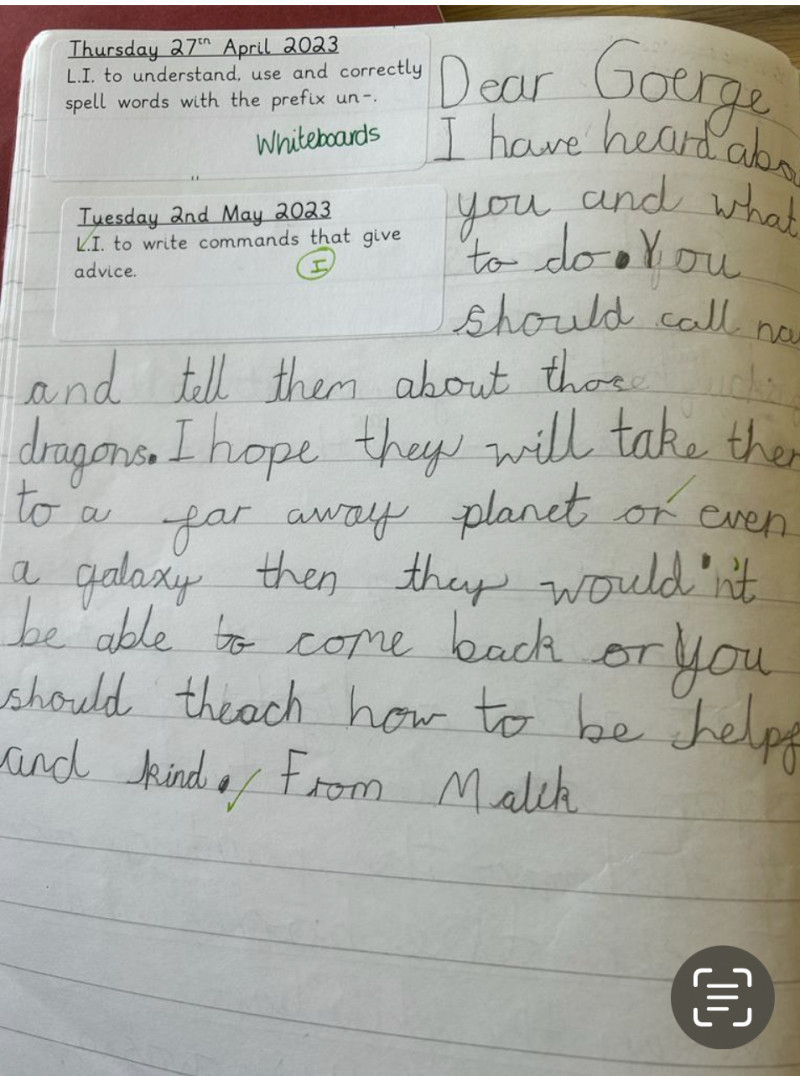 Thursday 27th April 2023
L.I. to understand, use and correctly
spell words with the prefix un-.
Whiteboards
Tuesday 2nd May 2023
L.I. to write commands that give
advice.
I
Dear Goerge
I have heard abou
you and what
to do. You
should call na
and tell them about those
dragons. I hope they will take them
to a far away planet or even
a galaxy then they would'nt
be able to come back or You
should theach how to be helpf
and kind. From Malik